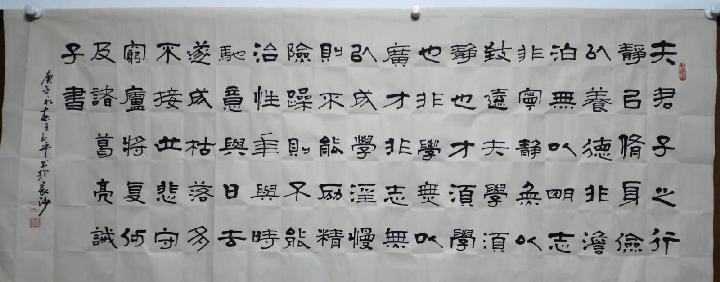 夫君子之行
靜以脩身儉
以養德非澹
泊無以明志
非寧靜無以
致遠夫學須
靜也才須學
也非學無以
廣才非志無
以成學淫慢
則不能励精
險躁則不能
治性年與時
馳意與日去
遂成枯落多
不接世悲守
窮廬將復何
及諸葛亮誡
子書
庚子 平書於長沙